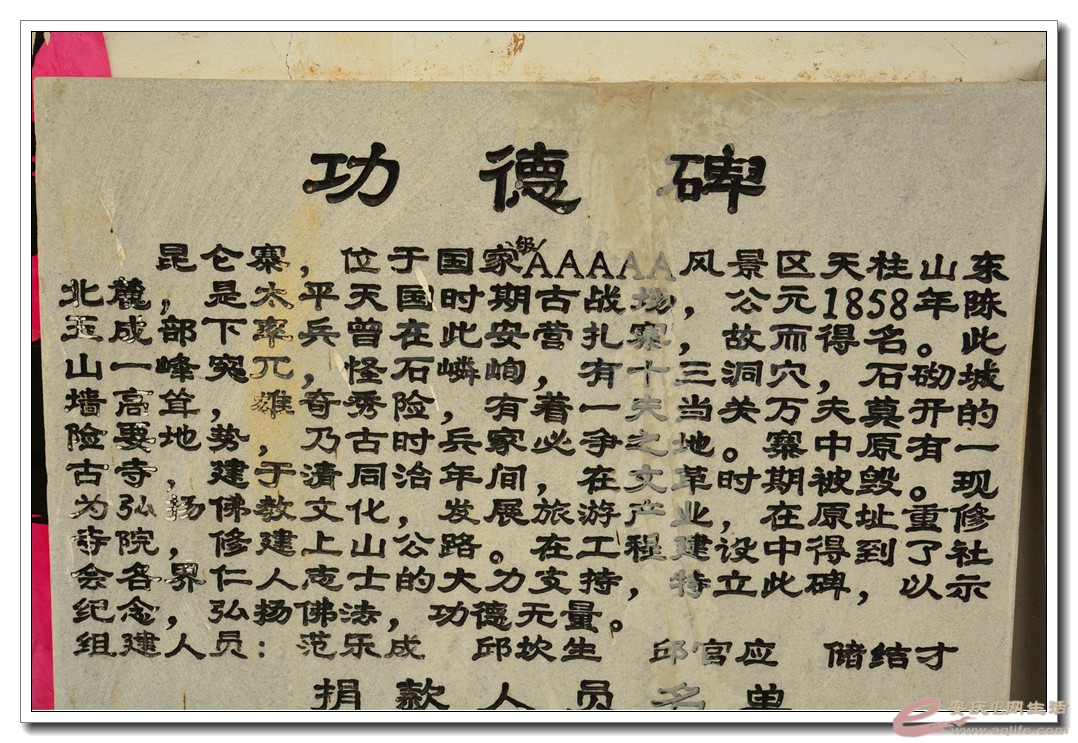 功德碑
昆仑寨，位于国家级AAAAA风景区天柱山东
北麓，是太平天国时期古战场，公元1858年陈
玉成部下率兵曾在此安营扎寨，故而得名。此
山一峰突兀，怪石嶙峋，有十三洞穴，石砌城
墙高耸，雄奇秀险，有着一夫当关万夫莫开的
险要地势，乃古时兵家必争之地。寨中原有一
古寺，建于清同治年间，在文革时期被毁。现
为弘扬佛教文化，发展旅游产业，在原址重修
寺院，修建上山公路。在工程建设中得到了社
会各界仁人志士的大力支持，特立此碑，以示
纪念，弘扬佛法，功德无量。
组建人员：范乐成 邱坎生 邱官应 储结才
捐款人员名单
安庆E网生活
www.aqlife.com